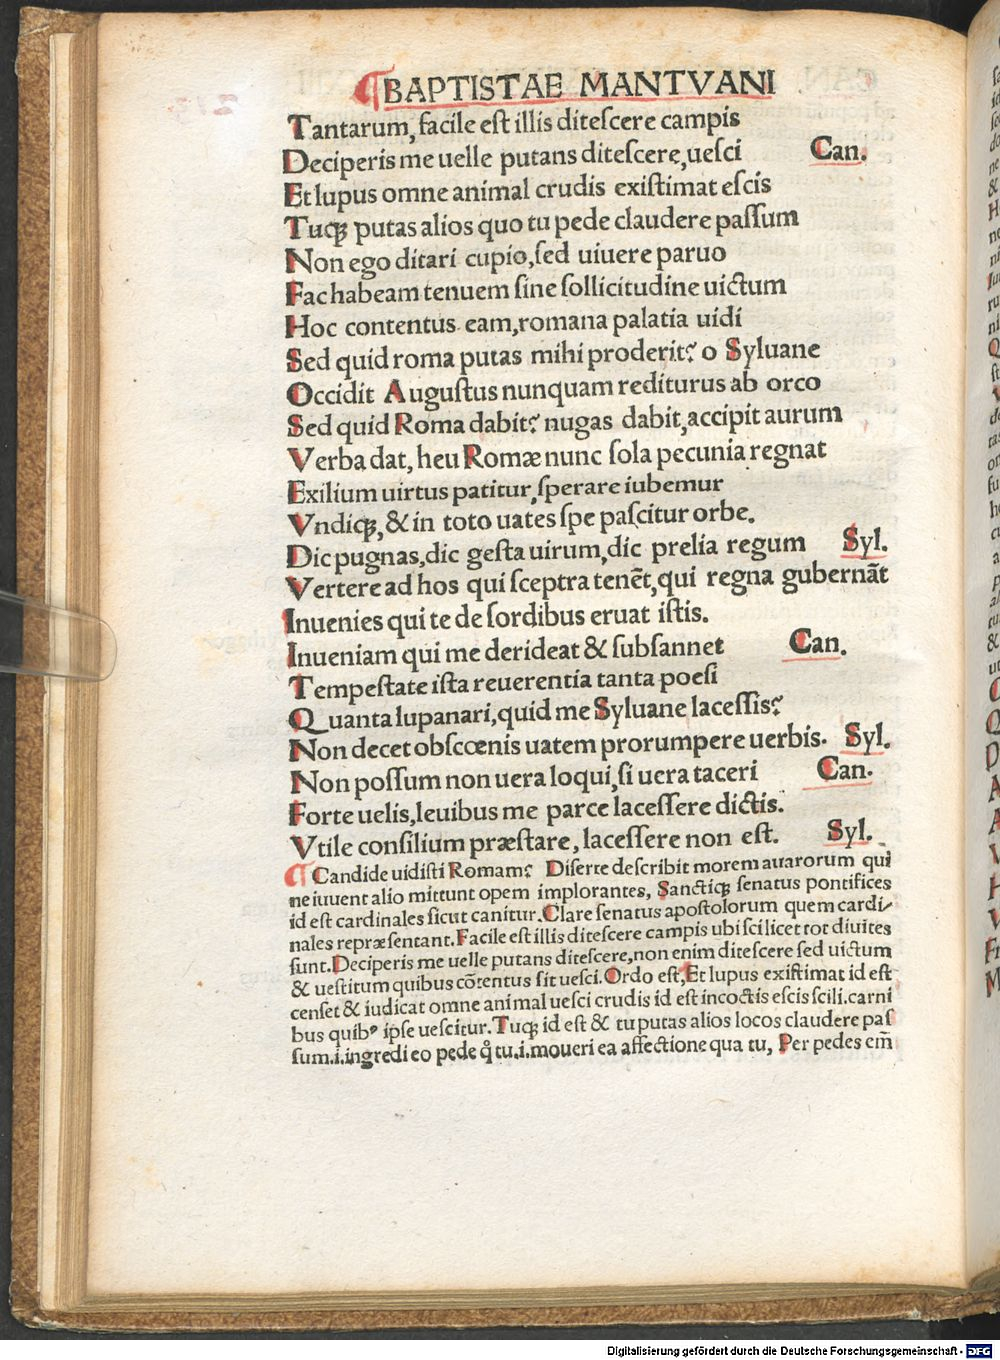 ¶BAPTISTAE MANTVANI
Tantarum, facile est illis ditescere campis
Deciperis me uelle putans ditescere, uesci Can.
Et lupus omne animal crudis existimat escis
Tuqꝫ putas alios quo tu pede claudere passum
Non ego ditari cupio, sed uiuere paruo
Fac habeam tenuem sine sollicitudine uictum
Hoc contentus eam, romana palatia uidi
Sed quid roma putas mihi proderit? o Syluane
Occidit Augustus nunquam rediturus ab orco
Sed quid Roma dabit? nugas dabit, accipit aurum
Verba dat, heu Romæ nunc sola pecunia regnat
Exilium uirtus patitur, sperare iubemur
Vndiqꝫ, & in toto uates spe pascitur orbe.
Dic pugnas, dic gesta uirum, dic prelia regum Syl.
Vertere ad hos qui sceptra tenẽt, qui regna gubernãt
Inuenies qui te de sordibus eruat istis.
Inueniam qui me derideat & subsannet Can.
Tempestate ista reuerentia tanta poesi
Quanta lupanari, quid me Syluane lacessis?
Non decet obscœnis uatem prorumpere uerbis. Syl.
Non possum non uera loqui, si uera taceri Can.
Forte uelis, leuibus me parce lacessere dictis.
Vtile consilium præstare, lacessere non est. Syl.
¶ Candide uidisti Romam? Diserte describit morem auarorum qui
ne iuuent alio mittunt opem implorantes, Sanctiqꝫ senatus pontifices
id est cardinales sicut canitur. Clare senatus apostolorum quem cardi/
nales repræsentant. Facile est illis ditescere campis ubi scilicet tot diuites
sunt. Deciperis me uelle putans ditescere, non enim ditescere sed uictum
& uestitum quibus cõtentus sit uesci. Ordo est, Et lupus existimat id est
censet & iudicat omne animal uesci crudis id est incoctis escis scili. carni
bus quibꝰ ipse uescitur. Tuqꝫ id est & tu putas alios locos claudere pas
sum .i. ingredi eo pede q̊ tu .i. moueri ea affectione qua tu, Per pedes em̃
Digitalisierung gefördert durch die Deutsche Forschungsgemeinschaft - DFG